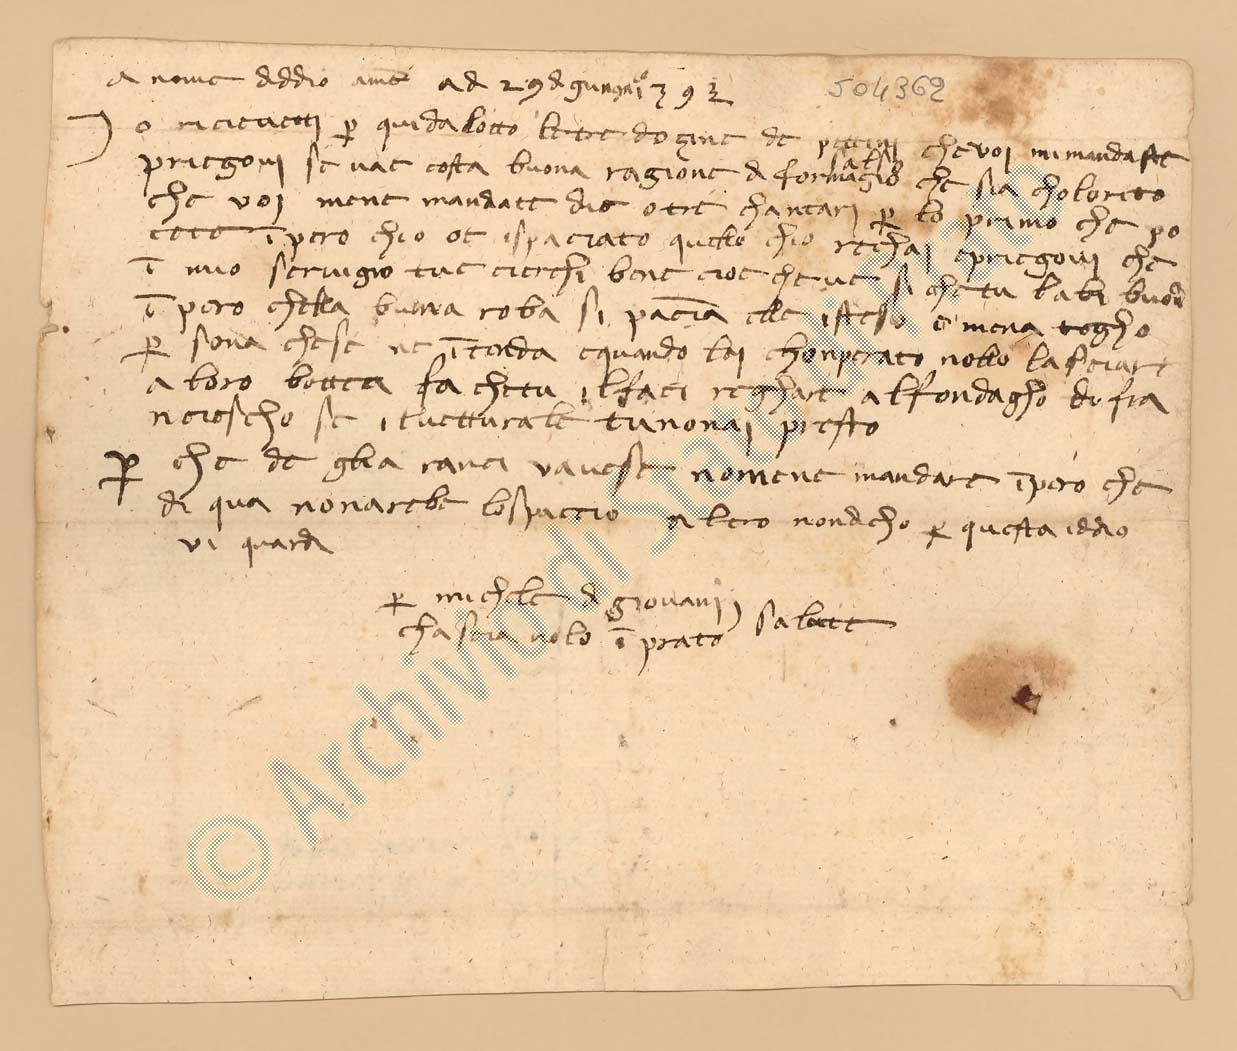 a nome dddio ame ad 29 di gungnio 1392
504362
Io ricievetti per quida lotto le tre dogine de pettini che voi mi mandaste
salso
priegovi se vae costa buona ragione di formagio che sia cholorito
che voi mene mandate due o tre chantari per lo primo che po
tete impero chio oe ispaciato quello chio rechai e priegovi che
i mio servigio tue cierchi bene cioe che ve si che tu labi buona
impero chella buona roba si pacia elle istesso e mena togho
per sona chese ne intenda e quando lai chonperato nollo lasciare
a loro bottega fa chetu il faci reghare al fondagho di fra
nciescho se i vetturale tu nonai presto
Per che de gli a ranci vavese nomene mandare impero che
di qua nonarebe lo spaccio altro non dicho per questa iddio
vi quardi
per michele di giovanni
chasciaiuolo in prato salute
© Archivio di Stato di Prato